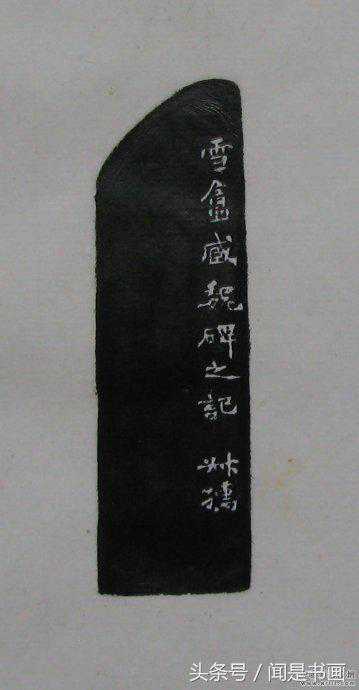 雪盦臧魏碑之記
头条号/闻是书画